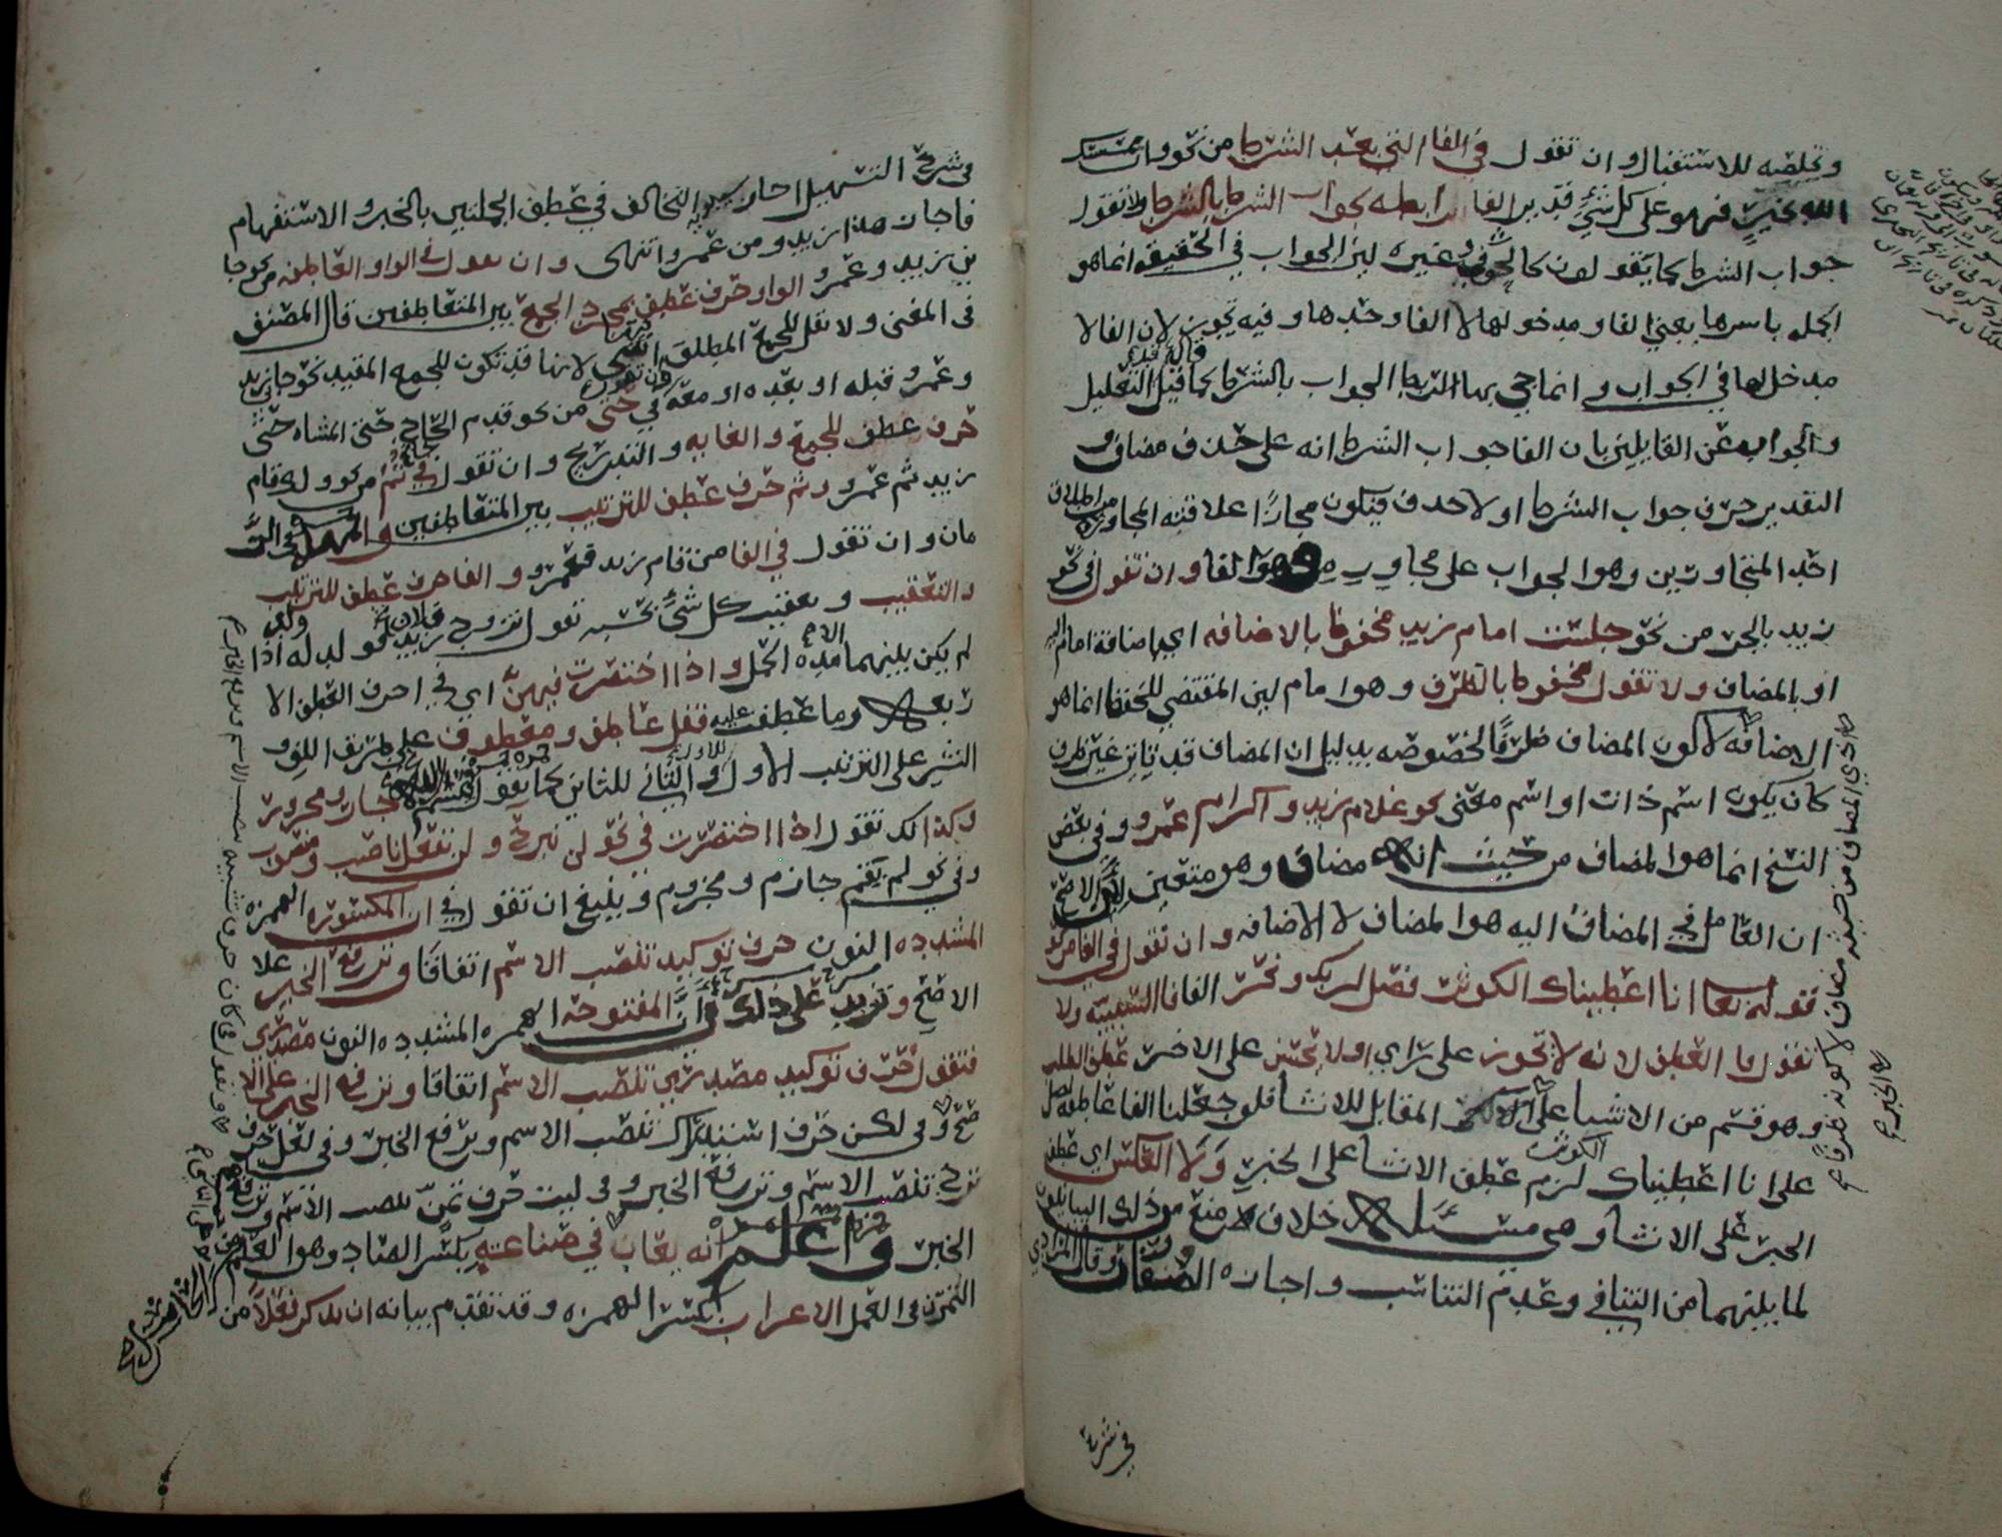 وتخلصه للاستقبال وان تقول في الفا التي بعد الشرط من نحو وان يمسسك
الله بخير فهو على كل شيء قدير الفا رابطه لجواب الشرط بالشرط ولا تقول
جواب الشرط كما يقولون كالحوفي وغيره لين الجواب في الحقيقه انما هو
الجله باسرها يعني الفا ومدخولها لا الفا وحدها وفيه تجوز لان الفا لا
مدخل لها في الجواب وانما جي بها لتربط الجواب بالشرط كما قيل التعليل
والجواب عن القايلين بان الفا جواب الشرط انه على حذف مضاف و
التقدير حرف جواب الشرط او لا حدف فيكون مجازًا علاقته المجاوره من اطلاق
احد المتجاورين وهو الجواب على مجاوره وهو الفا وان تقول في نحو
زيد بالجر من نحو جلست امام زيد مخفوظ بالاضافه اي باضافة امام اليه
او بالمضاف ولا تقول مخفوظ بالظرف وهو امام لين المقتضي للخفظ انما هو
الاضافه لا كون المضاف ظرفًا لخصوصه بدليل ان المضاف قد ياتي غير ظرف
كان يكون اسم ذات او اسم معنى نحو غلام زيد واكرام عمرو وفي بعض
النسخ انما هو المضاف من حيث انه مضاف وهو متعين لان الاصح
ان العامل في المضاف اليه هو المضاف لا الاضافه وان تقول في الفا من نحو
قوله تعا انا اعطيناك الكوثر فصل لربك وانحر الفا فا السببيه ولا
تقول فا العطف لانه لا يجوز على راي او لا يحسن على الاخر عطف الطلب
وهو قسم من الانشا على الخبر المقابل للانشا فلو جعلنا الفا عاطفه فصل
على انا اعطيناك الكوثر لزم عطف الانشا على الخبر ولا العكس اي عطف
الخبر على الانشا وهي مسئله خلاف منع من ذلك البيانيون
لما بينهما من التنافي وعدم التناسب واجازه الصفار وقال المرادي
في شرح
في شرح التسهيل اجاز سيبويه التخالف في عطف الجملتين بالخبر والاستفهام
فاجاز هذا زيد ومن عمرو انتهى وان تقول في الواو العاطفه من نحو جا
ني زيد وعمرو الواو حرف عطف لمجرد الجمع بين المتعاطفين قال المصنف
في المغني ولا تقل للجمع المطلق انتهى لانها قد تكون للجمع المقيد نحو جا زيد
وعمرو قبله او بعده او معه وان تقول في حتى من نحو قدم الحجاج حتى المشاه حتى
حرف عطف للجمع والغايه والتدريج وان تقول في ثم من نحو قولك قام
زيد ثم عمرو وثم حرف عطف للترتيب بين المتعاطفين والمهله في الز
مان وان تقول في الفا من قام زيد فعمرو والفا حرف عطف للترتيب
والتعقيب وتعقيب كل شيء بحسبه تقول تزوج زيد فولد له اذا
لم يكن بينهما الا مدة الحمل واذا اختصرت فيهن اي في احرف العطف الا
ربعه وما عطف عليه فقل عاطف ومعطوف على طريق اللف و
النشر على الترتيب الاول للاول والثاني للثاني كما يقول جار ومجرور
وكذالك تقول اذا اختصرت في نحو لن نبرح ولن تفعل ناصب ومنصوب
وفي نحو لم يقم جازم ومجزوم وينبغي ان تقول في ان المكسوره الهمزه
المشدده النون حرف توكيد تنصب الاسم اتفاقا وترفع الخبر علا
الاصح وتزيد على ذلك في أن المفتوحة الهمزه المشدده النون مصدري
فتقول حرف توكيد مصدري تنصب الاسم اتفاقا وترفع الخبر على الا
صح وفي لكن حرف استدراك تنصب الاسم وترفع الخبر وفي لعل حرف
ترجي تنصب الاسم وترفع الخبر وفي ليت حرف تمن تنصب الاسم وترفع
الخبر واعلم انه يعاب في صناعته بكسر الصاد وهو العلم
التمرن في العمل الاعراب بكسر الهمزه وقد تقدم بيانه ان يذكر فعلًا من